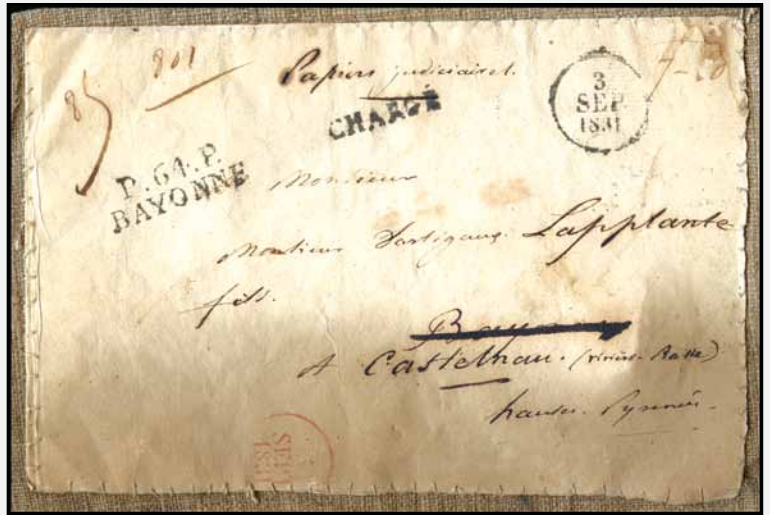 85
801
Papiers judiciaires.
CHARGÉ
3
SEP
1831
P.64.P.
BAYONNE
Monsieur
Monsieur Dartigaux Lapplante
fils.
A Castelnau. (rivière-Basse)
hautes-Pyrenées.
SEPT
1831